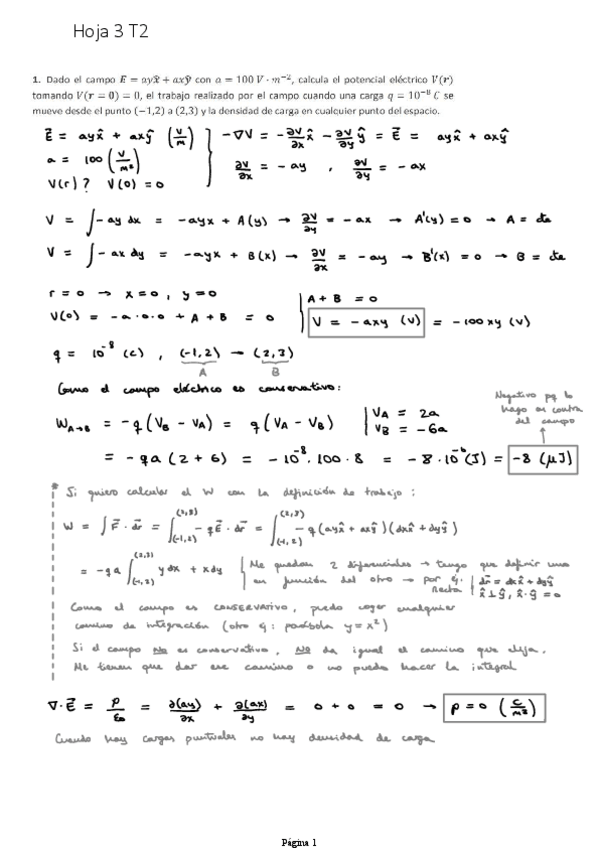 Hoja 3 T2
1. Dado el campo E = ayx̂ + axŷ con a = 100 V · m⁻², calcula el potencial eléctrico V(r)
tomando V(r = 0) = 0, el trabajo realizado por el campo cuando una carga q = 10⁻⁸ C se
mueve desde el punto (−1,2) a (2,3) y la densidad de carga en cualquier punto del espacio.
E⃗ = ayx̂ + axŷ (V/m) } −∇V = −∂V/∂x x̂ − ∂V/∂y ŷ = E⃗ = ayx̂ + axŷ
a = 100 (V/m²) ∂V/∂x = −ay , ∂V/∂y = −ax
V(r)? V(0) = 0
V = ∫−ay dx = −ayx + A(y) → ∂V/∂y = −ax → A'(y) = 0 → A = cte
V = ∫−ax dy = −ayx + B(x) → ∂V/∂x = −ay → B'(x) = 0 → B = cte
r = 0 → x = 0, y = 0 | A + B = 0
V(0) = −a·0·0 + A + B = 0 | V = −axy (V) = −100xy (V)
q = 10⁻⁸ (C) , (−1,2) → (2,3)
A B
Como el campo eléctrico es conservativo:
Negativo pq lo
hago en contra
del campo
W A→B = −q (V_B − V_A) = q (V_A − V_B) | V_A = 2a
V_B = −6a
= −qa (2 + 6) = −10⁻⁸ · 100 · 8 = −8·10⁻⁶ (J) = −8 (μJ)
* Si quiero calcular el W con la definición de trabajo:
W = ∫F⃗ · dr⃗ = ∫(−1,2)(2,3) −qE⃗ · dr⃗ = ∫(−1,2)(2,3) −q (ayx̂ + axŷ)(dxx̂ + dyŷ)
= −qa ∫(−1,2)(2,3) ydx + xdy { Me quedan 2 diferenciales → tengo que definir uno
en función del otro → por ej. recta | dr⃗ = dxx̂ + dyŷ
x̂ ⊥ ŷ, x̂·ŷ = 0
Como el campo es CONSERVATIVO, puedo coger cualquier
camino de integración (otro ej: parábola y = x²)
Si el campo No es conservativo, NO da igual el camino que elija.
Me tienen que dar ese camino o no puedo hacer la integral
∇·E⃗ = ρ/ε₀ = ∂(ay)/∂x + ∂(ax)/∂y = 0 + 0 = 0 → ρ = 0 (C/m³)
Cuando hay cargas puntuales no hay densidad de carga
Página 1